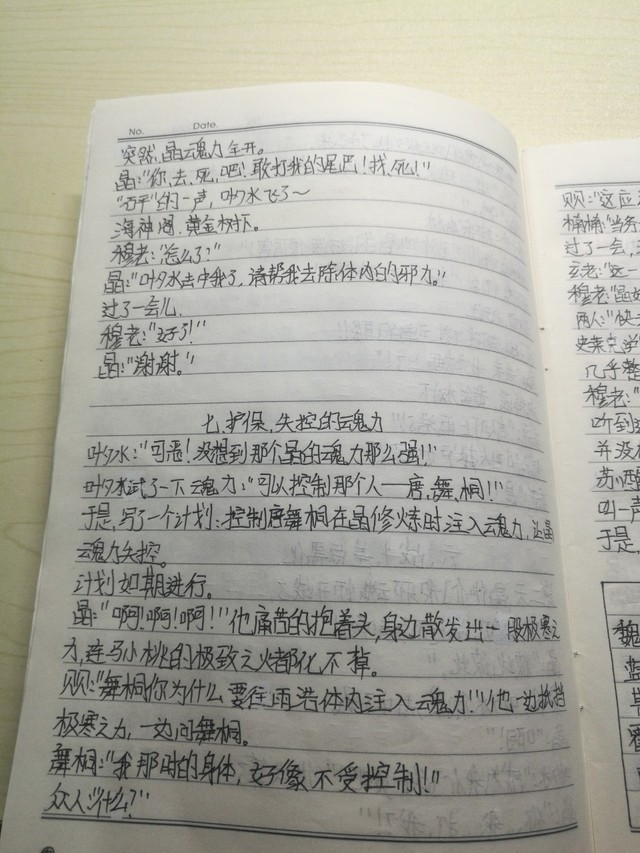 No. Date.
突然,晶云魂力全开。
晶:"你,去,死,吧!敢打我的尾巴!找,死!"
"石平"的一声,叶夕水飞了~
海神阁,黄金树下。
穆老:"怎么了?"
晶:"叶夕水击中我了,请帮我去除体内的邪力。"
过了一会儿,
穆老:"好了!"
晶:"谢谢。"
七,护保,失控的云魂力
叶夕水:"可恶!没想到那个晶的云魂力那么强!"
叶夕水试了一下云魂力:"可以控制那个人一唐,舞,桐!"
于是,写了一个计划:控制唐舞桐在晶修炼时注入云魂力,让晶
云魂力失控。
计划如期进行。
晶:"啊!啊!啊!"他痛苦的抱着头,身边散发出一股极寒之
力,连马小桃的极致之火都化不掉。
贝贝:"舞桐你为什么要往雨浩体内注入云魂力!"他一边抵挡
极寒之力,一边问舞桐。
舞桐:"我那时的身体,好像不受控制!"
众人:"什么?"
贝贝:"这应
桶桶:"当务
过了一会,
玄老:"这一
穆老:"晶
两人:"快
史莱克学
几乎整
穆老:"
听到
并没
苏
叫一声
于是,
魏
蓝